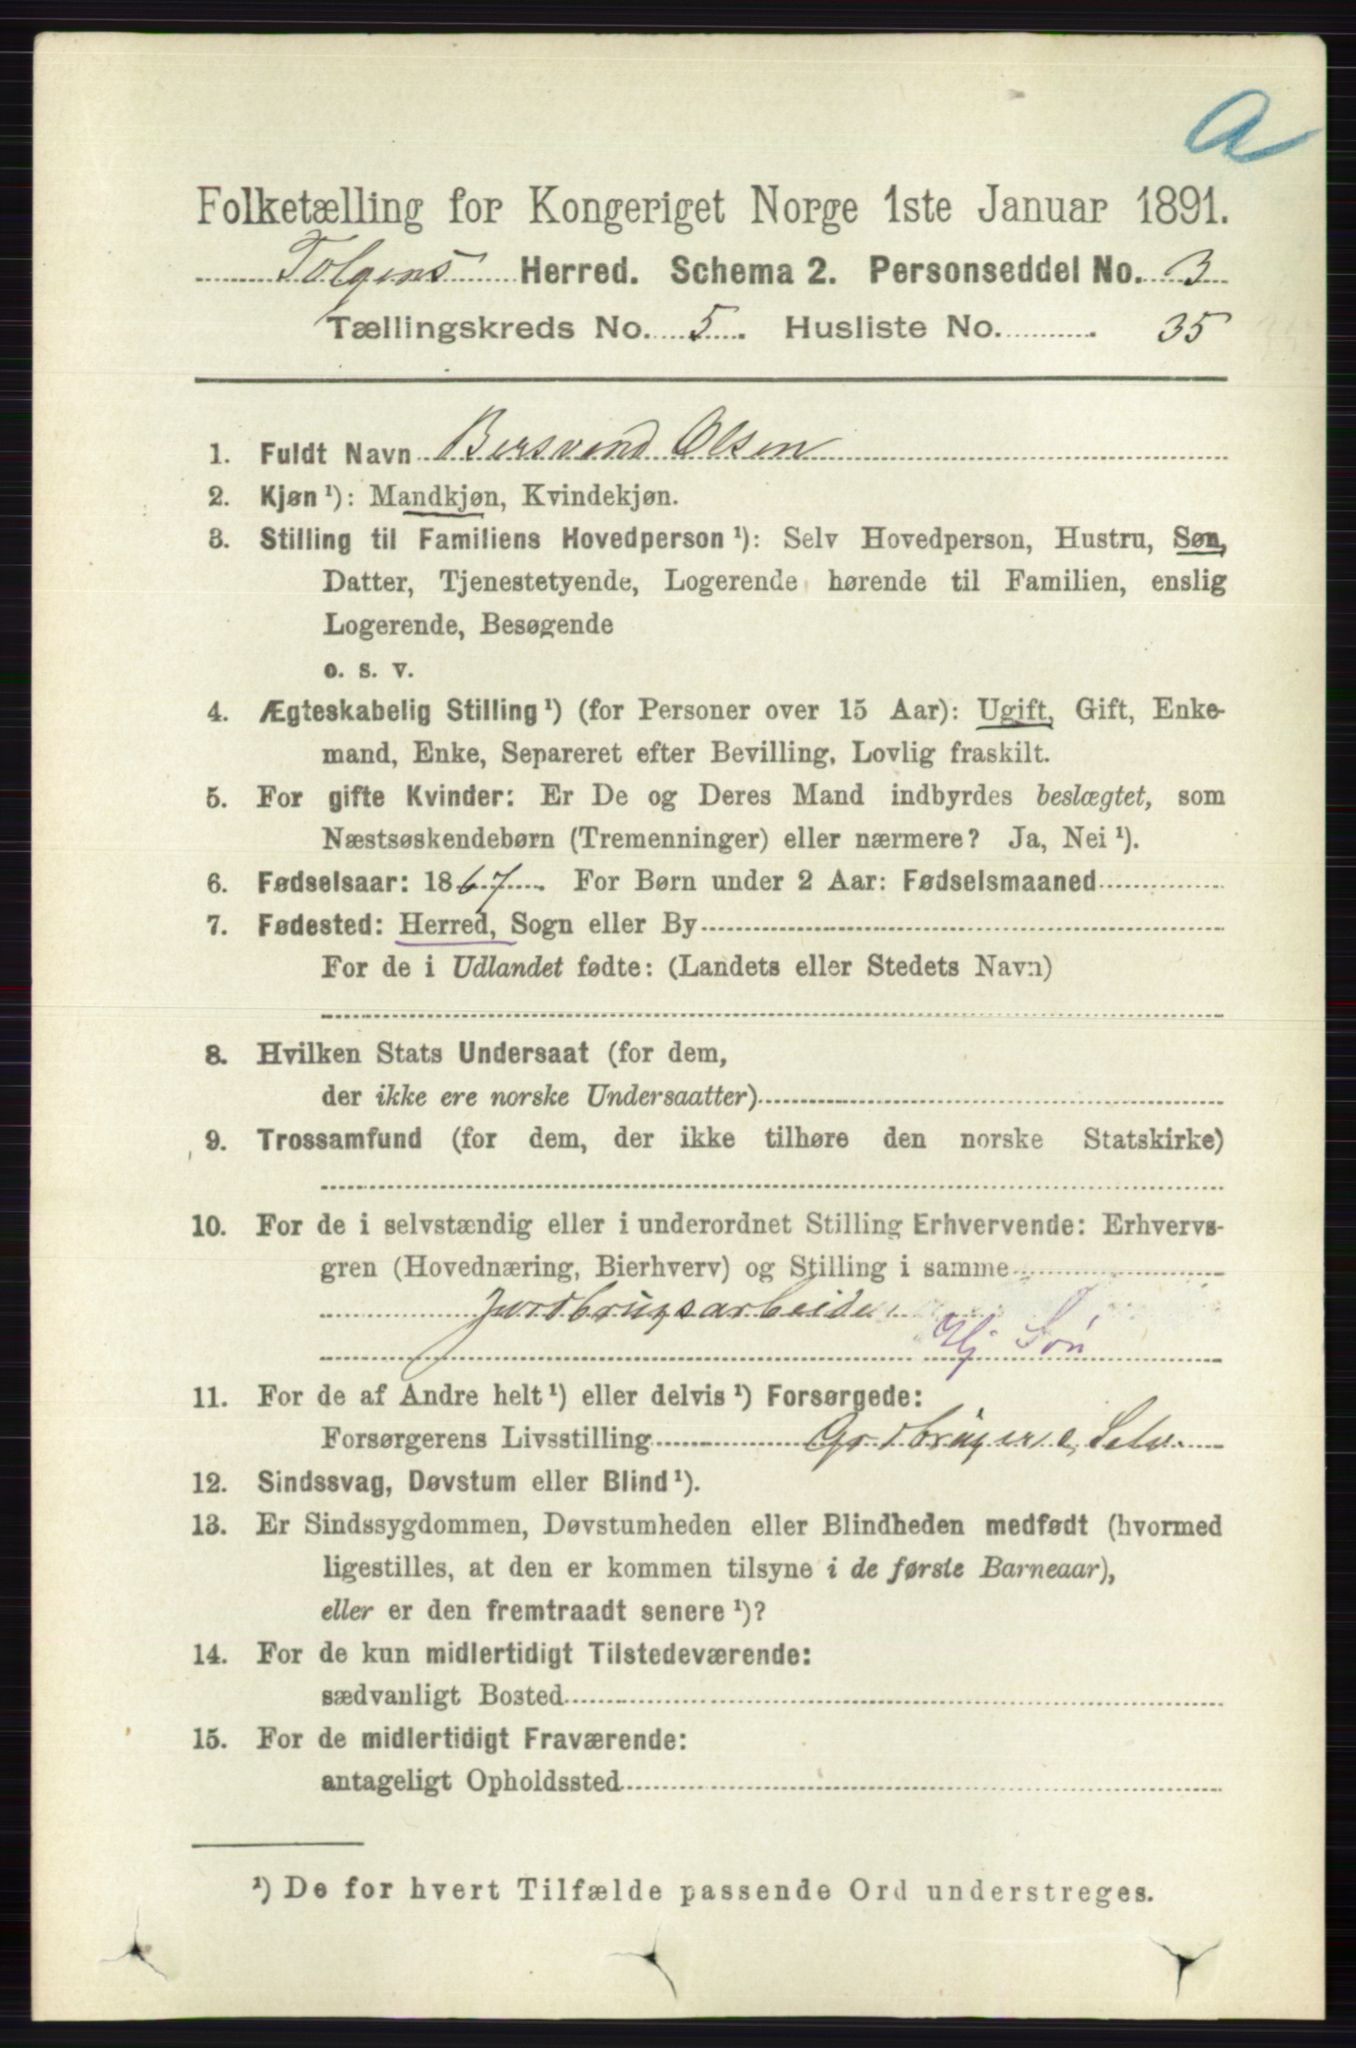 a
Folketælling for Kongeriget Norge 1ste Januar 1891.
Tolgens Herred. Schema 2. Personseddel No. 3
Tællingskreds No. 5. Husliste No. 35
1. Fuldt Navn Bersvend Olsen
2. Kjøn ¹): Mandkjøn, Kvindekjøn.
3. Stilling til Familiens Hovedperson ¹): Selv Hovedperson, Hustru, Søn,
Datter, Tjenestetyende, Logerende hørende til Familien, enslig
Logerende, Besøgende
o. s. v.
4. Ægteskabelig Stilling ¹) (for Personer over 15 Aar): Ugift, Gift, Enke-
mand, Enke, Separeret efter Bevilling, Lovlig fraskilt.
5. For gifte Kvinder: Er De og Deres Mand indbyrdes beslægtet, som
Næstsøskendebørn (Tremenninger) eller nærmere? Ja, Nei ¹).
6. Fødselsaar: 1867. For Børn under 2 Aar: Fødselsmaaned
7. Fødested: Herred, Sogn eller By
For de i Udlandet fødte: (Landets eller Stedets Navn)
8. Hvilken Stats Undersaat (for dem,
der ikke ere norske Undersaatter)
9. Trossamfund (for dem, der ikke tilhøre den norske Statskirke)
10. For de i selvstændig eller i underordnet Stilling Erhvervende: Erhvervs-
gren (Hovednæring, Bierhverv) og Stilling i samme
Jordbrugsarbeide
Hj Søn
11. For de af Andre helt ¹) eller delvis ¹) Forsørgede:
Forsørgerens Livsstilling Grdbruger, Selv.
12. Sindssvag, Døvstum eller Blind ¹).
13. Er Sindssygdommen, Døvstumheden eller Blindheden medfødt (hvormed
ligestilles, at den er kommen tilsyne i de første Barneaar),
eller er den fremtraadt senere ¹)?
14. For de kun midlertidigt Tilstedeværende:
sædvanligt Bosted
15. For de midlertidigt Fraværende:
antageligt Opholdssted
¹) De for hvert Tilfælde passende Ord understreges.